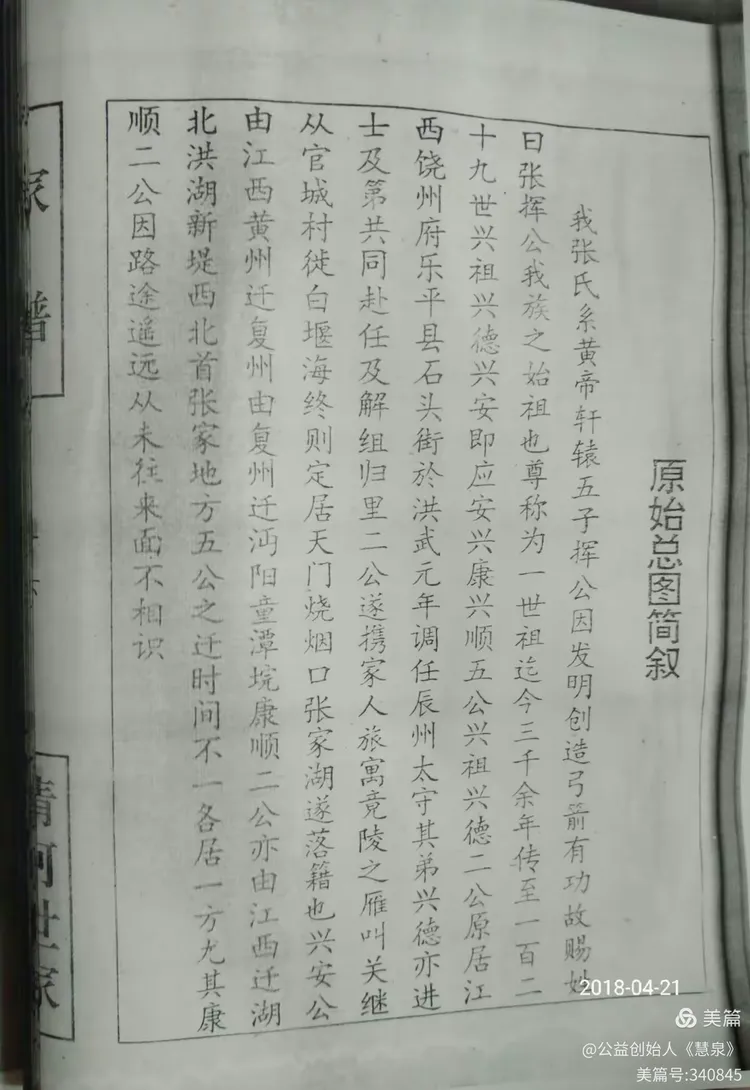 原始总图简叙
我张氏系黄帝轩辕五子挥公因发明创造弓箭有功故赐姓
曰张挥公我族之始祖也尊称为一世祖迄今三千余年传至一百二
十九世兴祖兴德兴安即应安兴康兴顺五公兴祖兴德二公原居江
西饶州府乐平县石头街於洪武元年调任辰州太守其弟兴德亦进
士及第共同赴任及解组归里二公遂携家人旅寓竟陵之雁叫关继
从官城村徙白堰海终则定居天门烧烟口张家湖遂落籍也兴安公
由江西黄州迁复州由复州迁沔阳童潭垸康顺二公亦由江西迁湖
北洪湖新堤西北首张家地方五公之迁时间不一各居一方尤其康
顺二公因路途遥远从未往来面不相识
家谱
清河世家
2018-04-21
美篇
@公益创始人《慧泉》
美篇号:340845